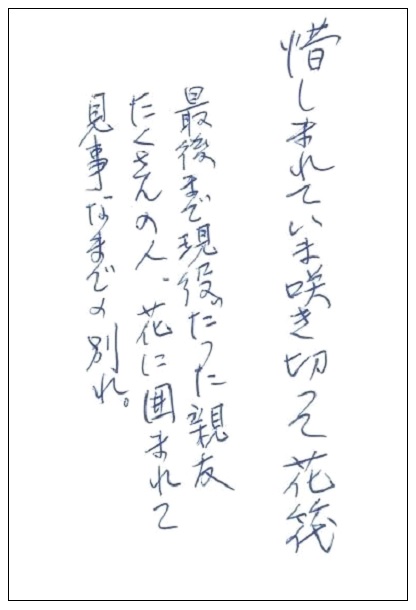 惜しまれていま咲き切って花筏
最後まで現役だった親友
たくさんの人、花に囲まれて
見事なまでの別れ。